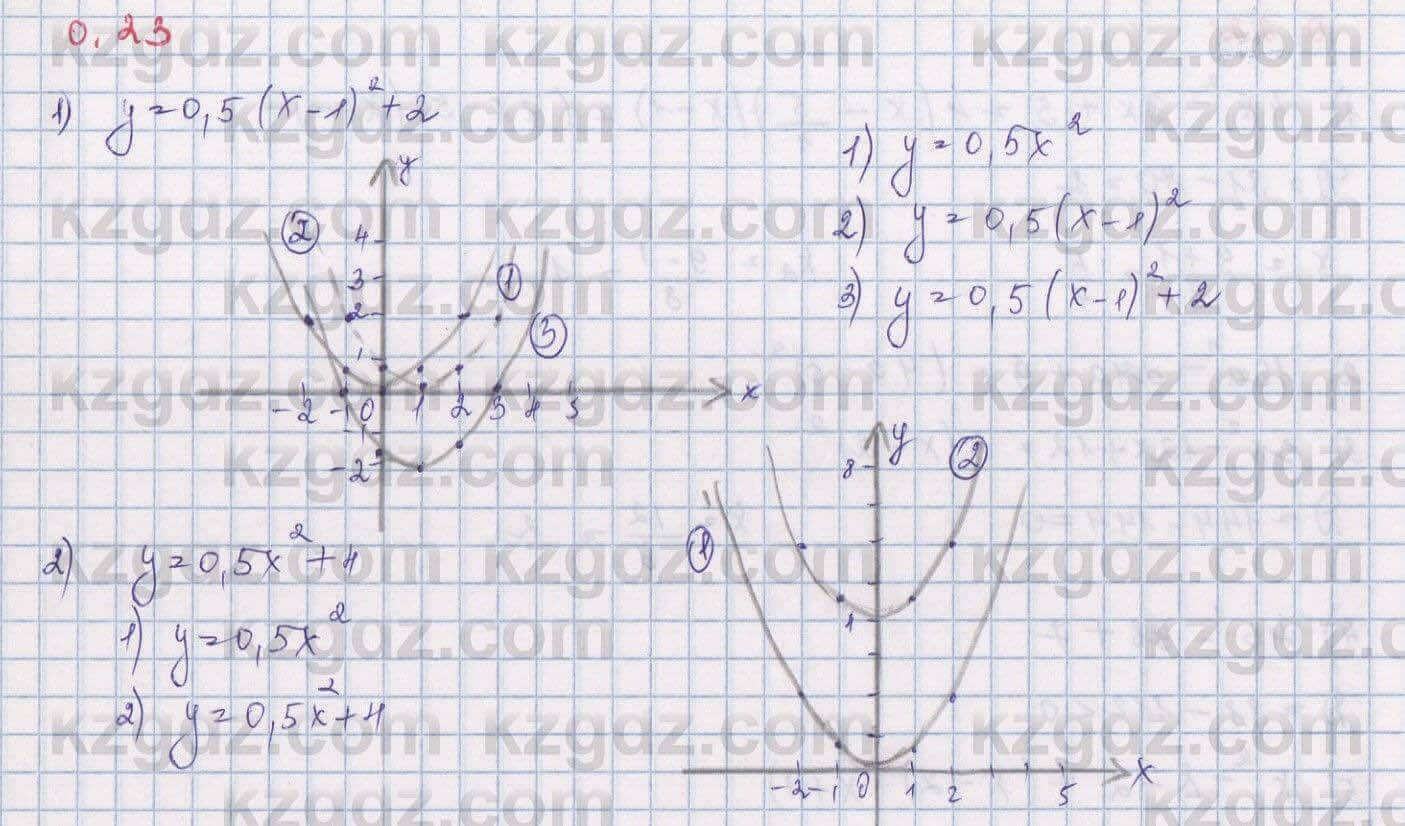 0.23
1) y=0,5(x-1)²+2
1) y=0,5x²
2) y=0,5(x-1)²
3) y=0,5(x-1)²+2
y
2
4
3
1
2
3
1
-2 -1 0 1 2 3 4 5 x
-1
-2
2) y=0,5x²+4
1) y=0,5x²
2) y=0,5x²+4
y
8
2
1
-2 -1 0 1 2 5 x
kzgdz.com